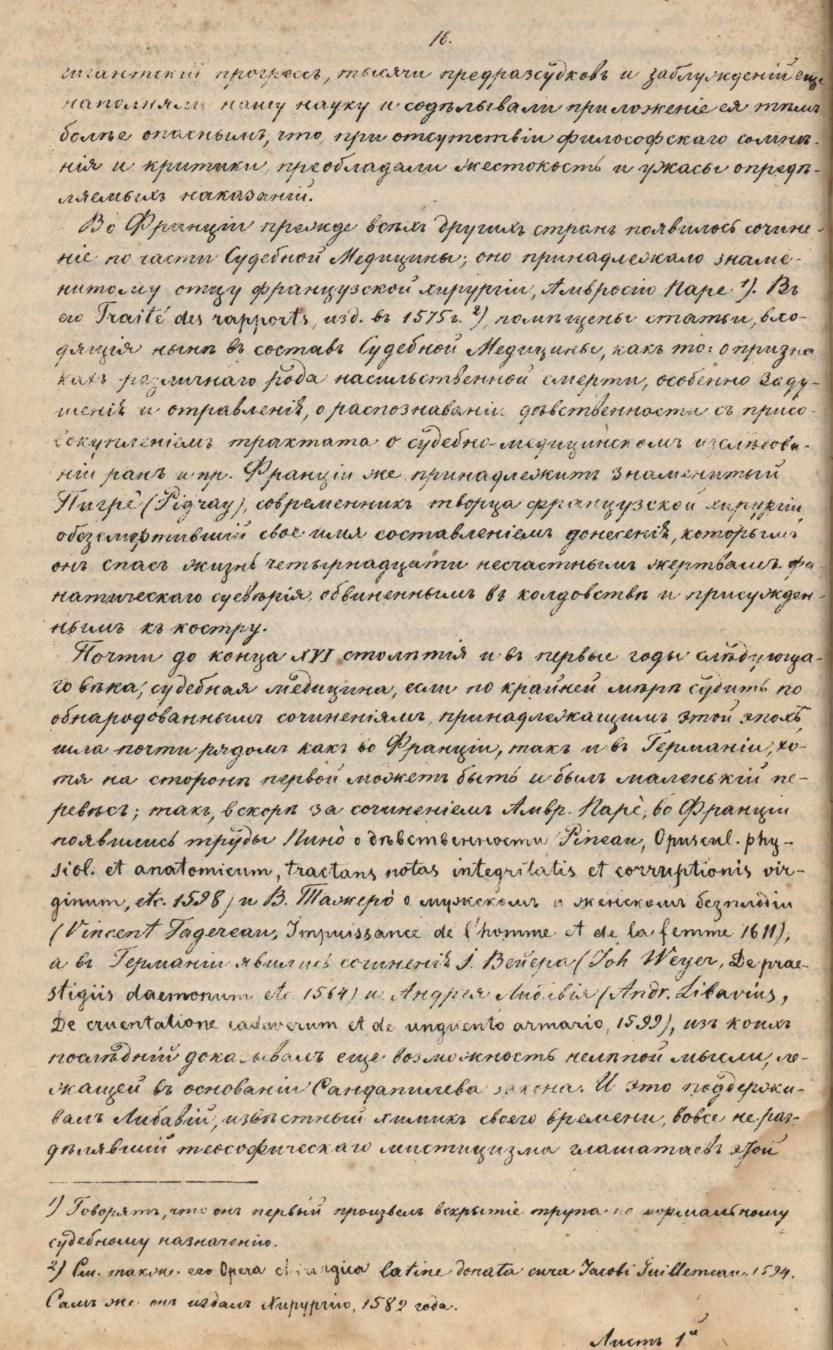 16.
гигантскій прогрессъ, тысячи предразсудковъ и заблужденій еще
наполняли нашу науку и содѣлывали приложеніе ея тѣмъ
болѣе опаснымъ, что при отсутствіи философскаго сомнѣ-
нія и критики, преобладали жестокость и ужасы опредѣ-
ляемыхъ наказаній.
Во Франціи прежде всѣхъ другихъ странъ появилось сочине-
ніе по части Судебной Медицины; оно принадлежало знаме-
нитому отцу французской хирургіи, Амвросію Паре 1). Въ
его Traité des rapports, изд. въ 1575 г. 2), помѣщены статьи, вхо-
дящія нынѣ въ составъ Судебной Медицины, какъ то: о призна-
кахъ различнаго рода насильственной смерти, особенно заду-
шенія и отравленія, о распознаваніи дѣвственности съ присо-
вокупленіемъ трактата о судебно-медицинскомъ изслѣдова-
ніи ранъ и пр. Франціи же принадлежитъ знаменитый
Пигрè (Pigray), современникъ творца французской хирургіи
обезсмертившій свое имя составленіемъ донесенія, которымъ
онъ спасъ жизнь четырнадцати несчастнымъ жертвамъ фа-
натическаго суевѣрія, обвиненнымъ въ колдовствѣ и присужден-
нымъ къ костру.
Почти до конца XVI столѣтія и въ первые годы слѣдующа-
го вѣка, судебная медицина, если по крайней мѣрѣ судить по
обнародованнымъ сочиненіямъ, принадлежащимъ этой эпохѣ
шла почти рядомъ какъ во Франціи, такъ и въ Германіи, хо-
тя на сторонѣ первой можетъ быть и былъ маленькій пе-
ревѣсъ; такъ, вскорѣ за сочиненіемъ Амвр. Парè, во Франціи
появились труды Пинò о дѣвственности Pineau, Opuscul. phy-
siol. et anatomicum, tractans notas integritatis et corruptionis vir-
ginum, etc. 1598) и В. Тажерò о мужскомъ и женскомъ безплодіи
(Vincent Tagereau, Impuissance de l'homme et de la femme 1611),
а въ Германіи явились сочиненія І. Вейера (Joh Weyer, De prae-
stigiis daemonum etc 1564) и Андрея Либавія (Andr. Libavius,
De cruentatione cadaverum et de unguento armario, 1599), изъ коихъ
послѣдній доказывалъ еще возможность нелѣпой мысли, ле-
жащей въ основаніи Сандапилева закона. И это поддержи-
валъ Либавій, извѣстный химикъ своего времени, вовсе не раз-
дѣлявшій теософическаго мистицизма глашатаевъ этой
1) Говорятъ, что онъ первый произвелъ вскрытіе трупа по формальному
судебному назначенію.
2) См. также его Opera chirurgica latine donata cura Jacobi Guillemeau. 1594.
Самъ же онъ издалъ Хирургію, 1582 года.
Листъ 1й